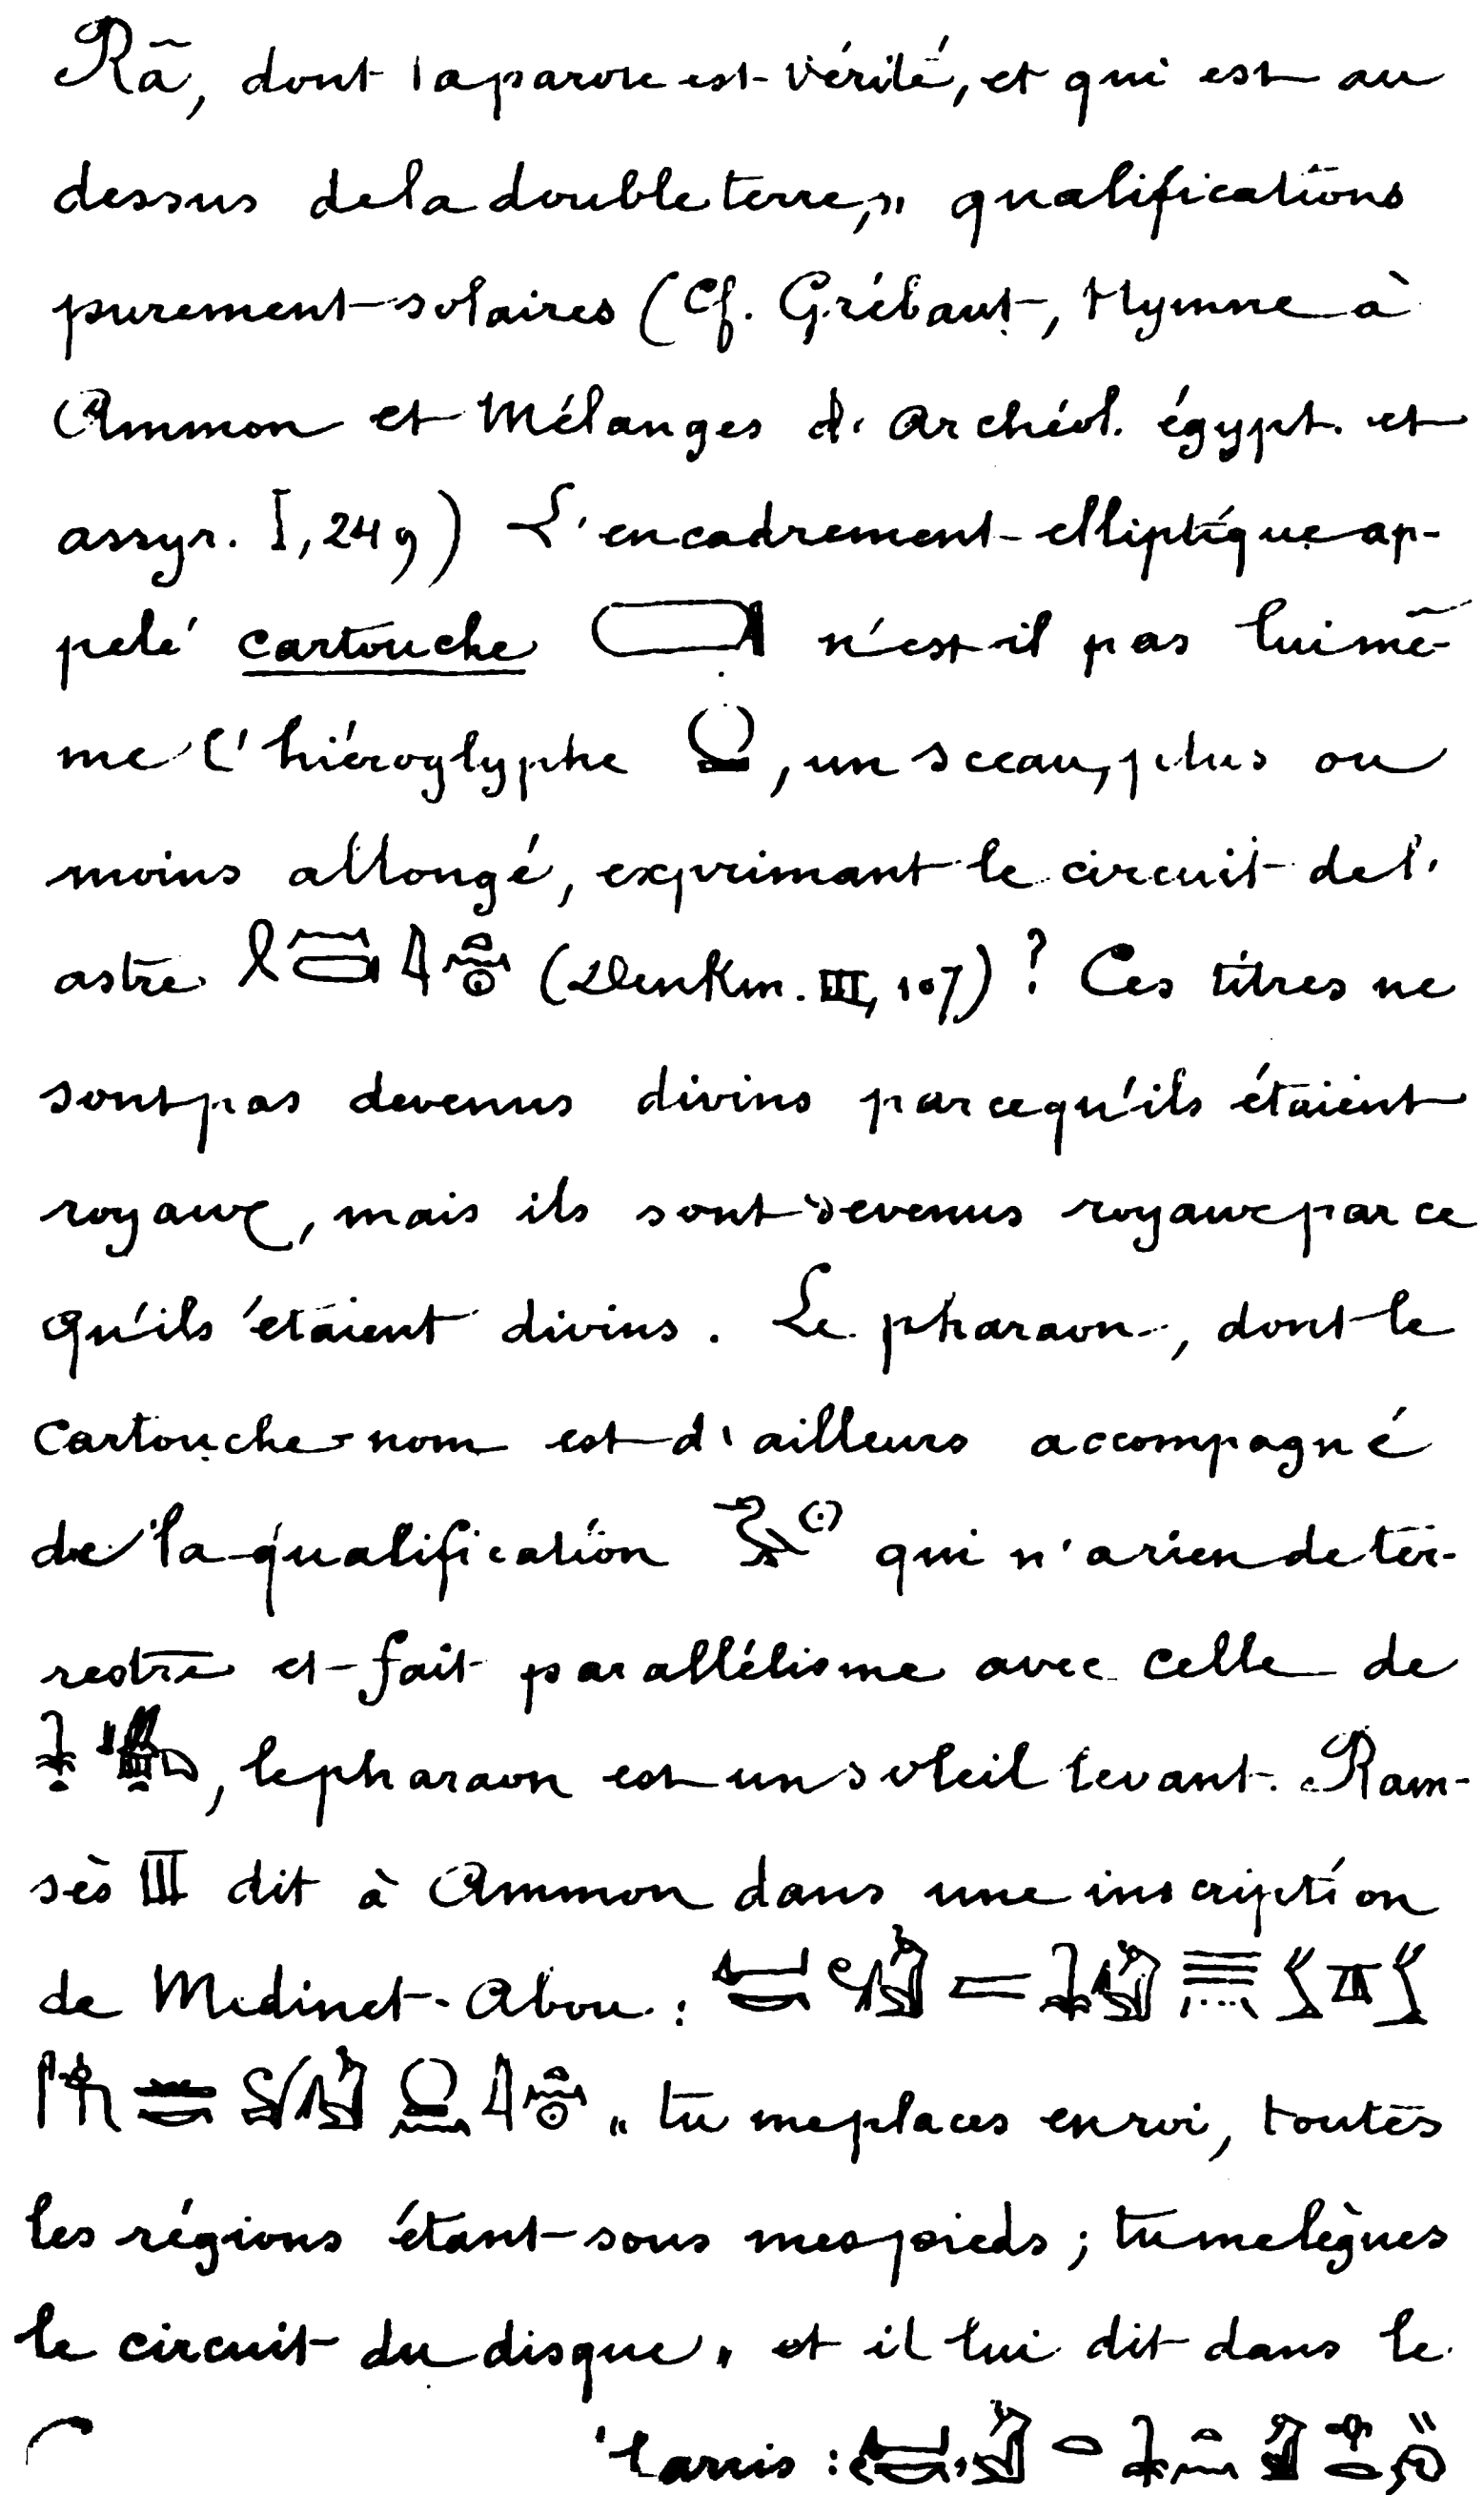 Râ, dont la parole est vérité, et qui est au
dessus de la double terre,» qualifications
purement solaires (Cf. Grébaut, Hymne à
Ammon et Mélanges d'Archéol. égypt. et
assyr. I, 249) L'encadrement elliptique ap-
pelé cartouche 𓍷 n'est-il pas lui mê-
me l'hiéroglyphe 𓍶, un sceau, plus ou
moins allongé, exprimant le circuit de l'
astre (Denkm. III, 107)? Ces titres ne
sont pas devenus divins parcequ'ils étaient
royaux, mais ils sont devenus royaux parce
qu'ils étaient divins. Le pharaon, dont le
cartouche-nom est d'ailleurs accompagné
de la qualification 𓅭𓇳 qui n'a rien de ter-
restre et fait parallélisme avec celle de
, le pharaon est un soleil levant. Ram-
sès III dit à Ammon dans une inscription
de Medinet-Abou :
« tu me places en roi, toutes
les régions étant sous mes pieds ; tu me lègues
le circuit du disque, » et il lui dit dans le
Harris :